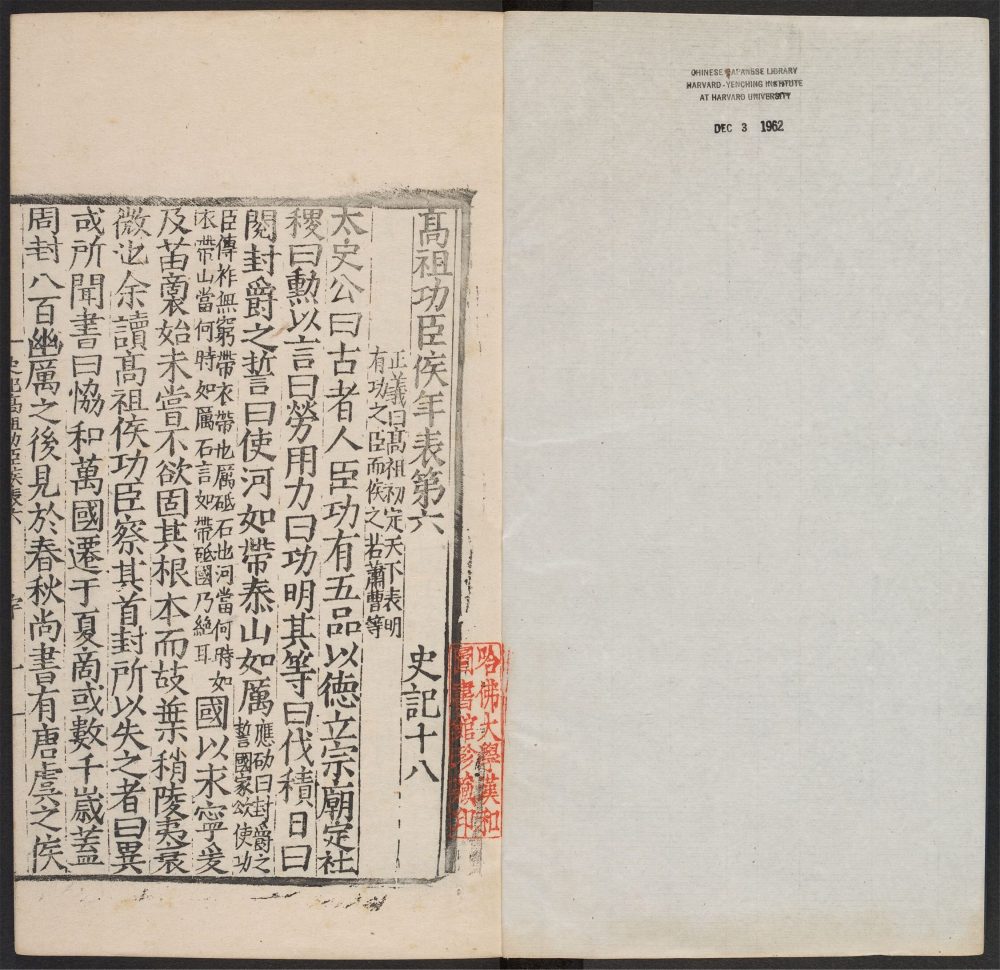 CHINESE JAPANESE LIBRARY
HARVARD-YENCHING INSTITUTE
AT HARVARD UNIVERSITY
DEC 3 1962
哈佛大學漢和
圖書館珍藏印
高祖功臣侯年表第六 史記十八
正義曰高祖初定天下表明
有功之臣而侯之若蕭曹等
太史公曰古者人臣功有五品以德立宗廟定社
稷曰勲以言曰勞用力曰功明其等曰伐積日曰
閱封爵之誓曰使河如帶泰山如厲
應劭曰封爵之
誓國家欲使功
臣傳祚無窮帶衣帶也厲砥石也河當何時如
衣帶山當何時如厲石言如帶砥國乃絶耳
國以末寧爰
及苗裔始未嘗不欲固其根本而故葉稍陵夷衰
微也余讀高祖侯功臣察其首封所以失之者曰異
㦯所聞書曰恊和萬國遷于夏商或數千歲蓋
周封八百幽厲之後見於春秋尚書有唐虞之侯
史記高祖功臣侯表六